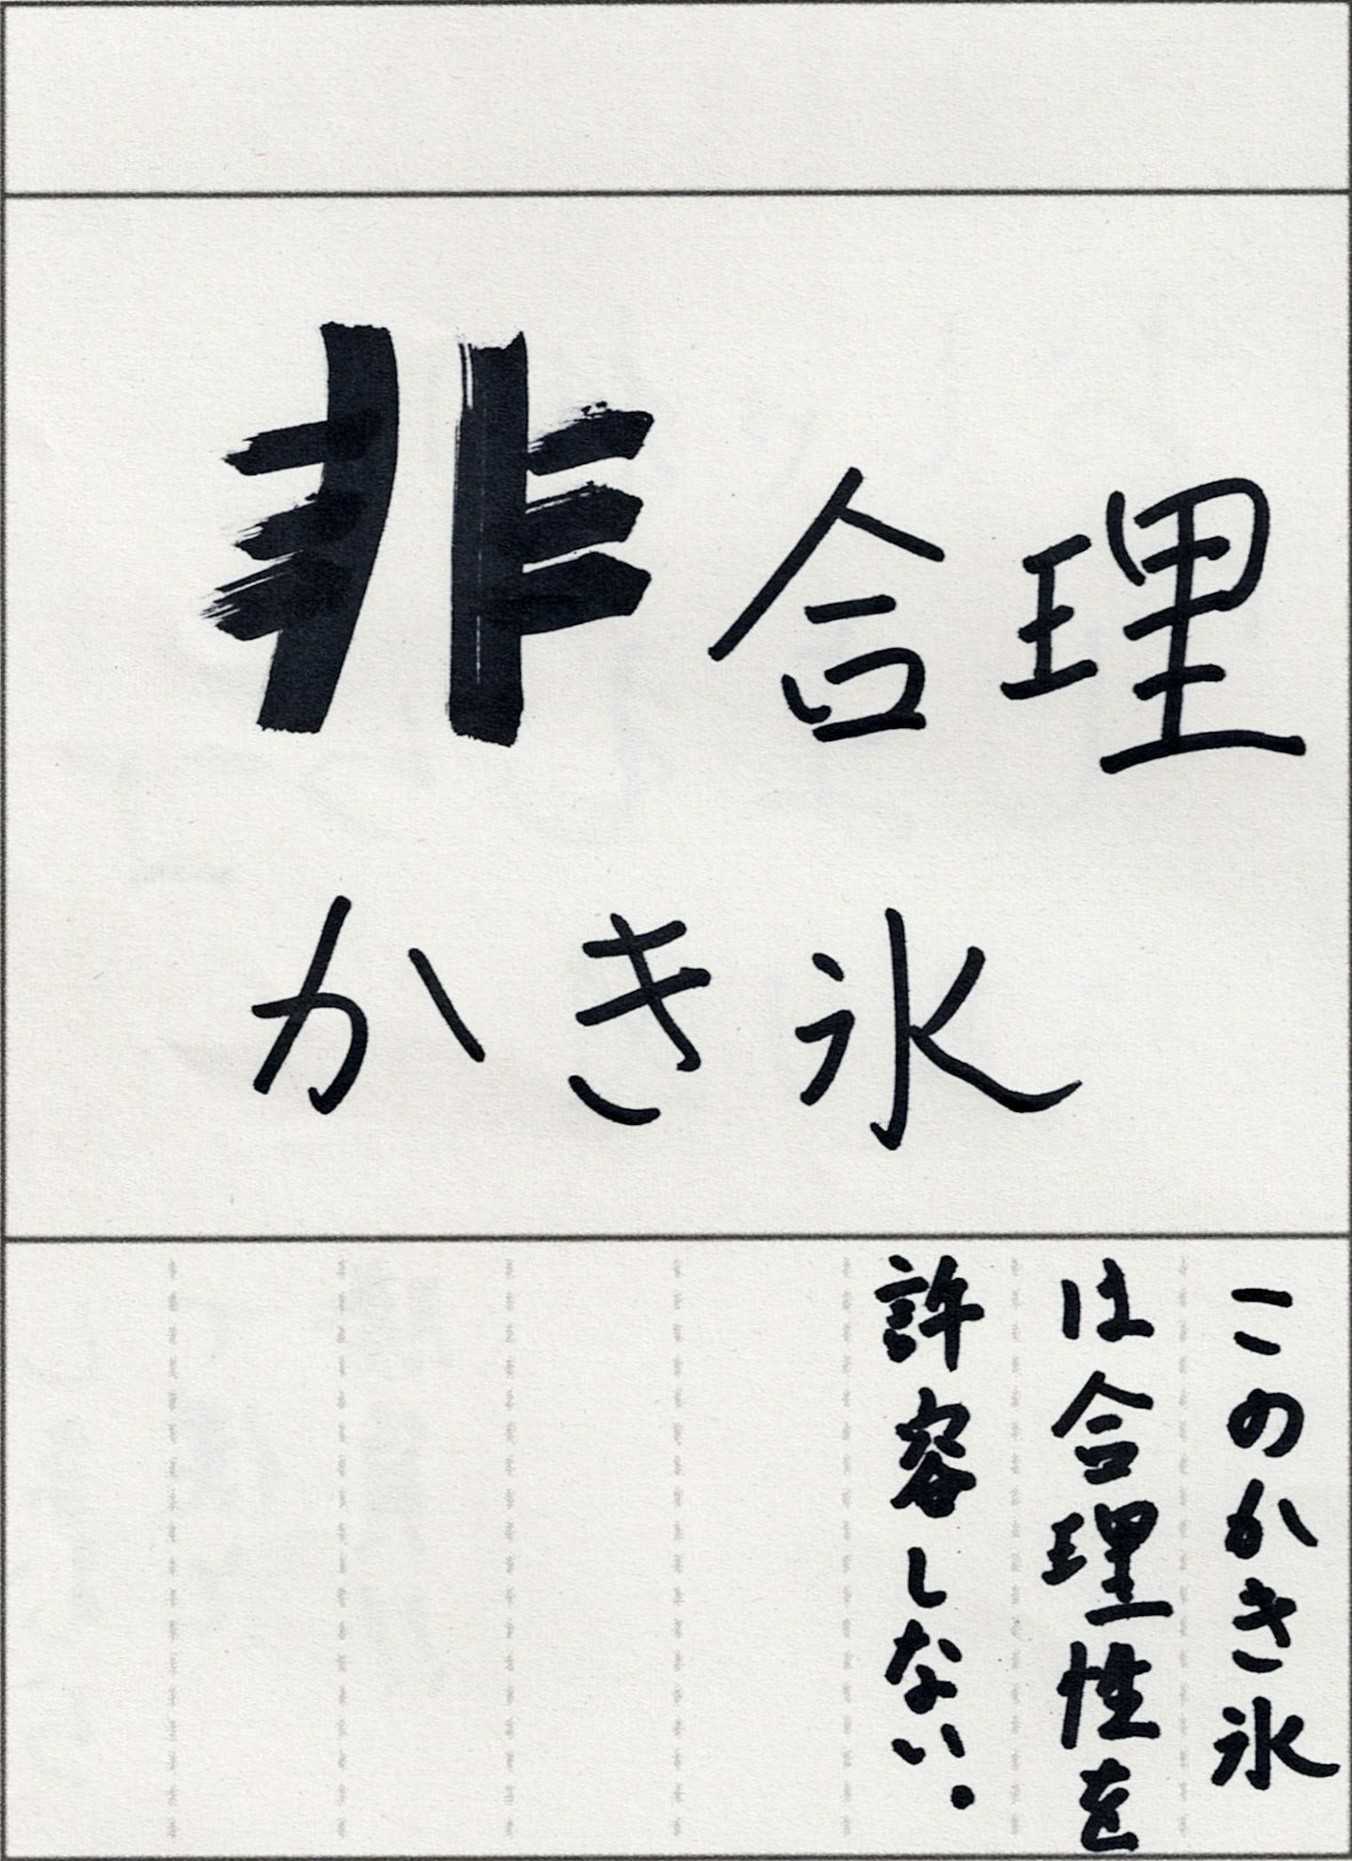 非合理
かき氷
このかき氷
は合理性を
許容しない。